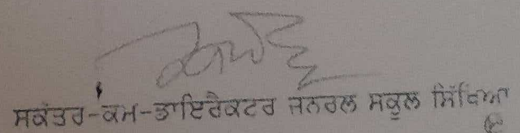 ਸਕੱਤਰ-ਕਮ-ਡਾਇਰੈਕਟਰ ਜਨਰਲ ਸਕੂਲ ਸਿੱਖਿਆ